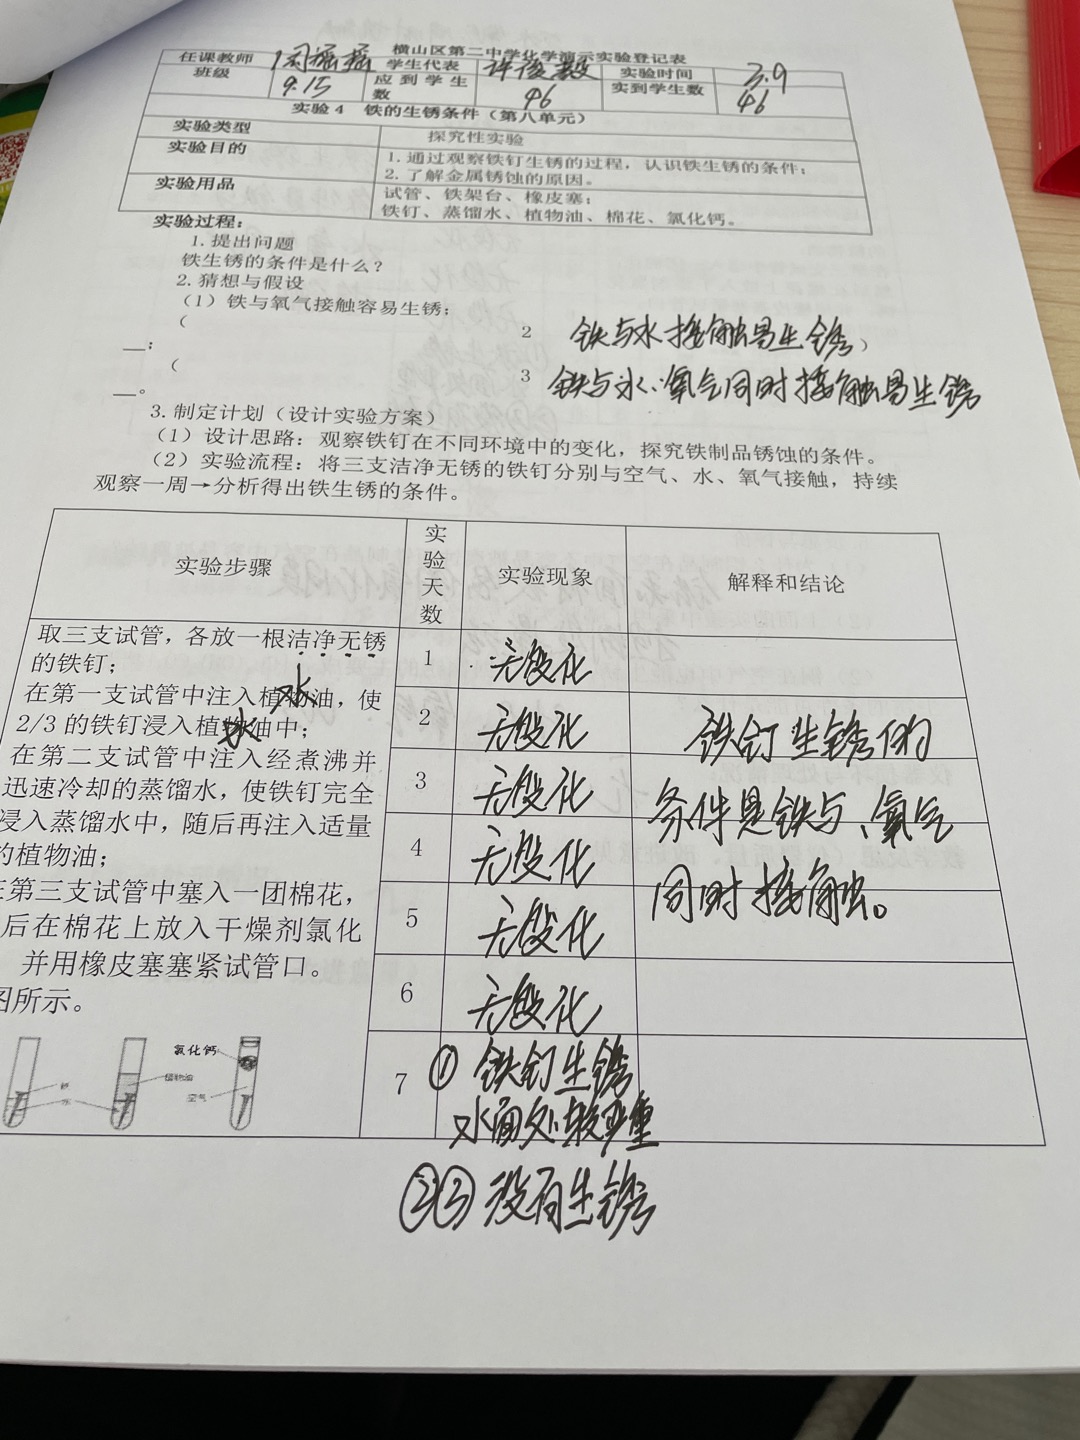 横山区第二中学化学演示实验登记表
任课教师 闫摇摇 学生代表 许俊毅 实验时间 3.9
班级 9.15 应到学生数 46 实到学生数 46
实验4 铁的生锈条件（第八单元）
实验类型 探究性实验
实验目的 1.通过观察铁钉生锈的过程，认识铁生锈的条件；
2.了解金属锈蚀的原因。
实验用品 试管、铁架台、橡皮塞；
铁钉、蒸馏水、植物油、棉花、氯化钙。
实验过程：
1.提出问题
铁生锈的条件是什么？
2.猜想与假设
（1）铁与氧气接触容易生锈；
（ 2 铁与水接触易生锈）
__；
（ 3 铁与水、氧气同时接触易生锈
__。
3.制定计划（设计实验方案）
（1）设计思路：观察铁钉在不同环境中的变化，探究铁制品锈蚀的条件。
（2）实验流程：将三支洁净无锈的铁钉分别与空气、水、氧气接触，持续
观察一周→分析得出铁生锈的条件。
实验步骤 实验天数 实验现象 解释和结论
取三支试管，各放一根洁净无锈
的铁钉；
在第一支试管中注入植物油，使
水
2/3的铁钉浸入植物油中；
水
在第二支试管中注入经煮沸并
迅速冷却的蒸馏水，使铁钉完全
浸入蒸馏水中，随后再注入适量
的植物油；
第三支试管中塞入一团棉花，
后在棉花上放入干燥剂氯化
并用橡皮塞塞紧试管口。
图所示。
氯化钙
植物油
水
空气
1 无变化
2 无变化
3 无变化
4 无变化
5 无变化
6 无变化
7 ① 铁钉生锈
水面处较严重
②③ 没有生锈
铁钉生锈的
条件是铁与、氧气
同时接触。